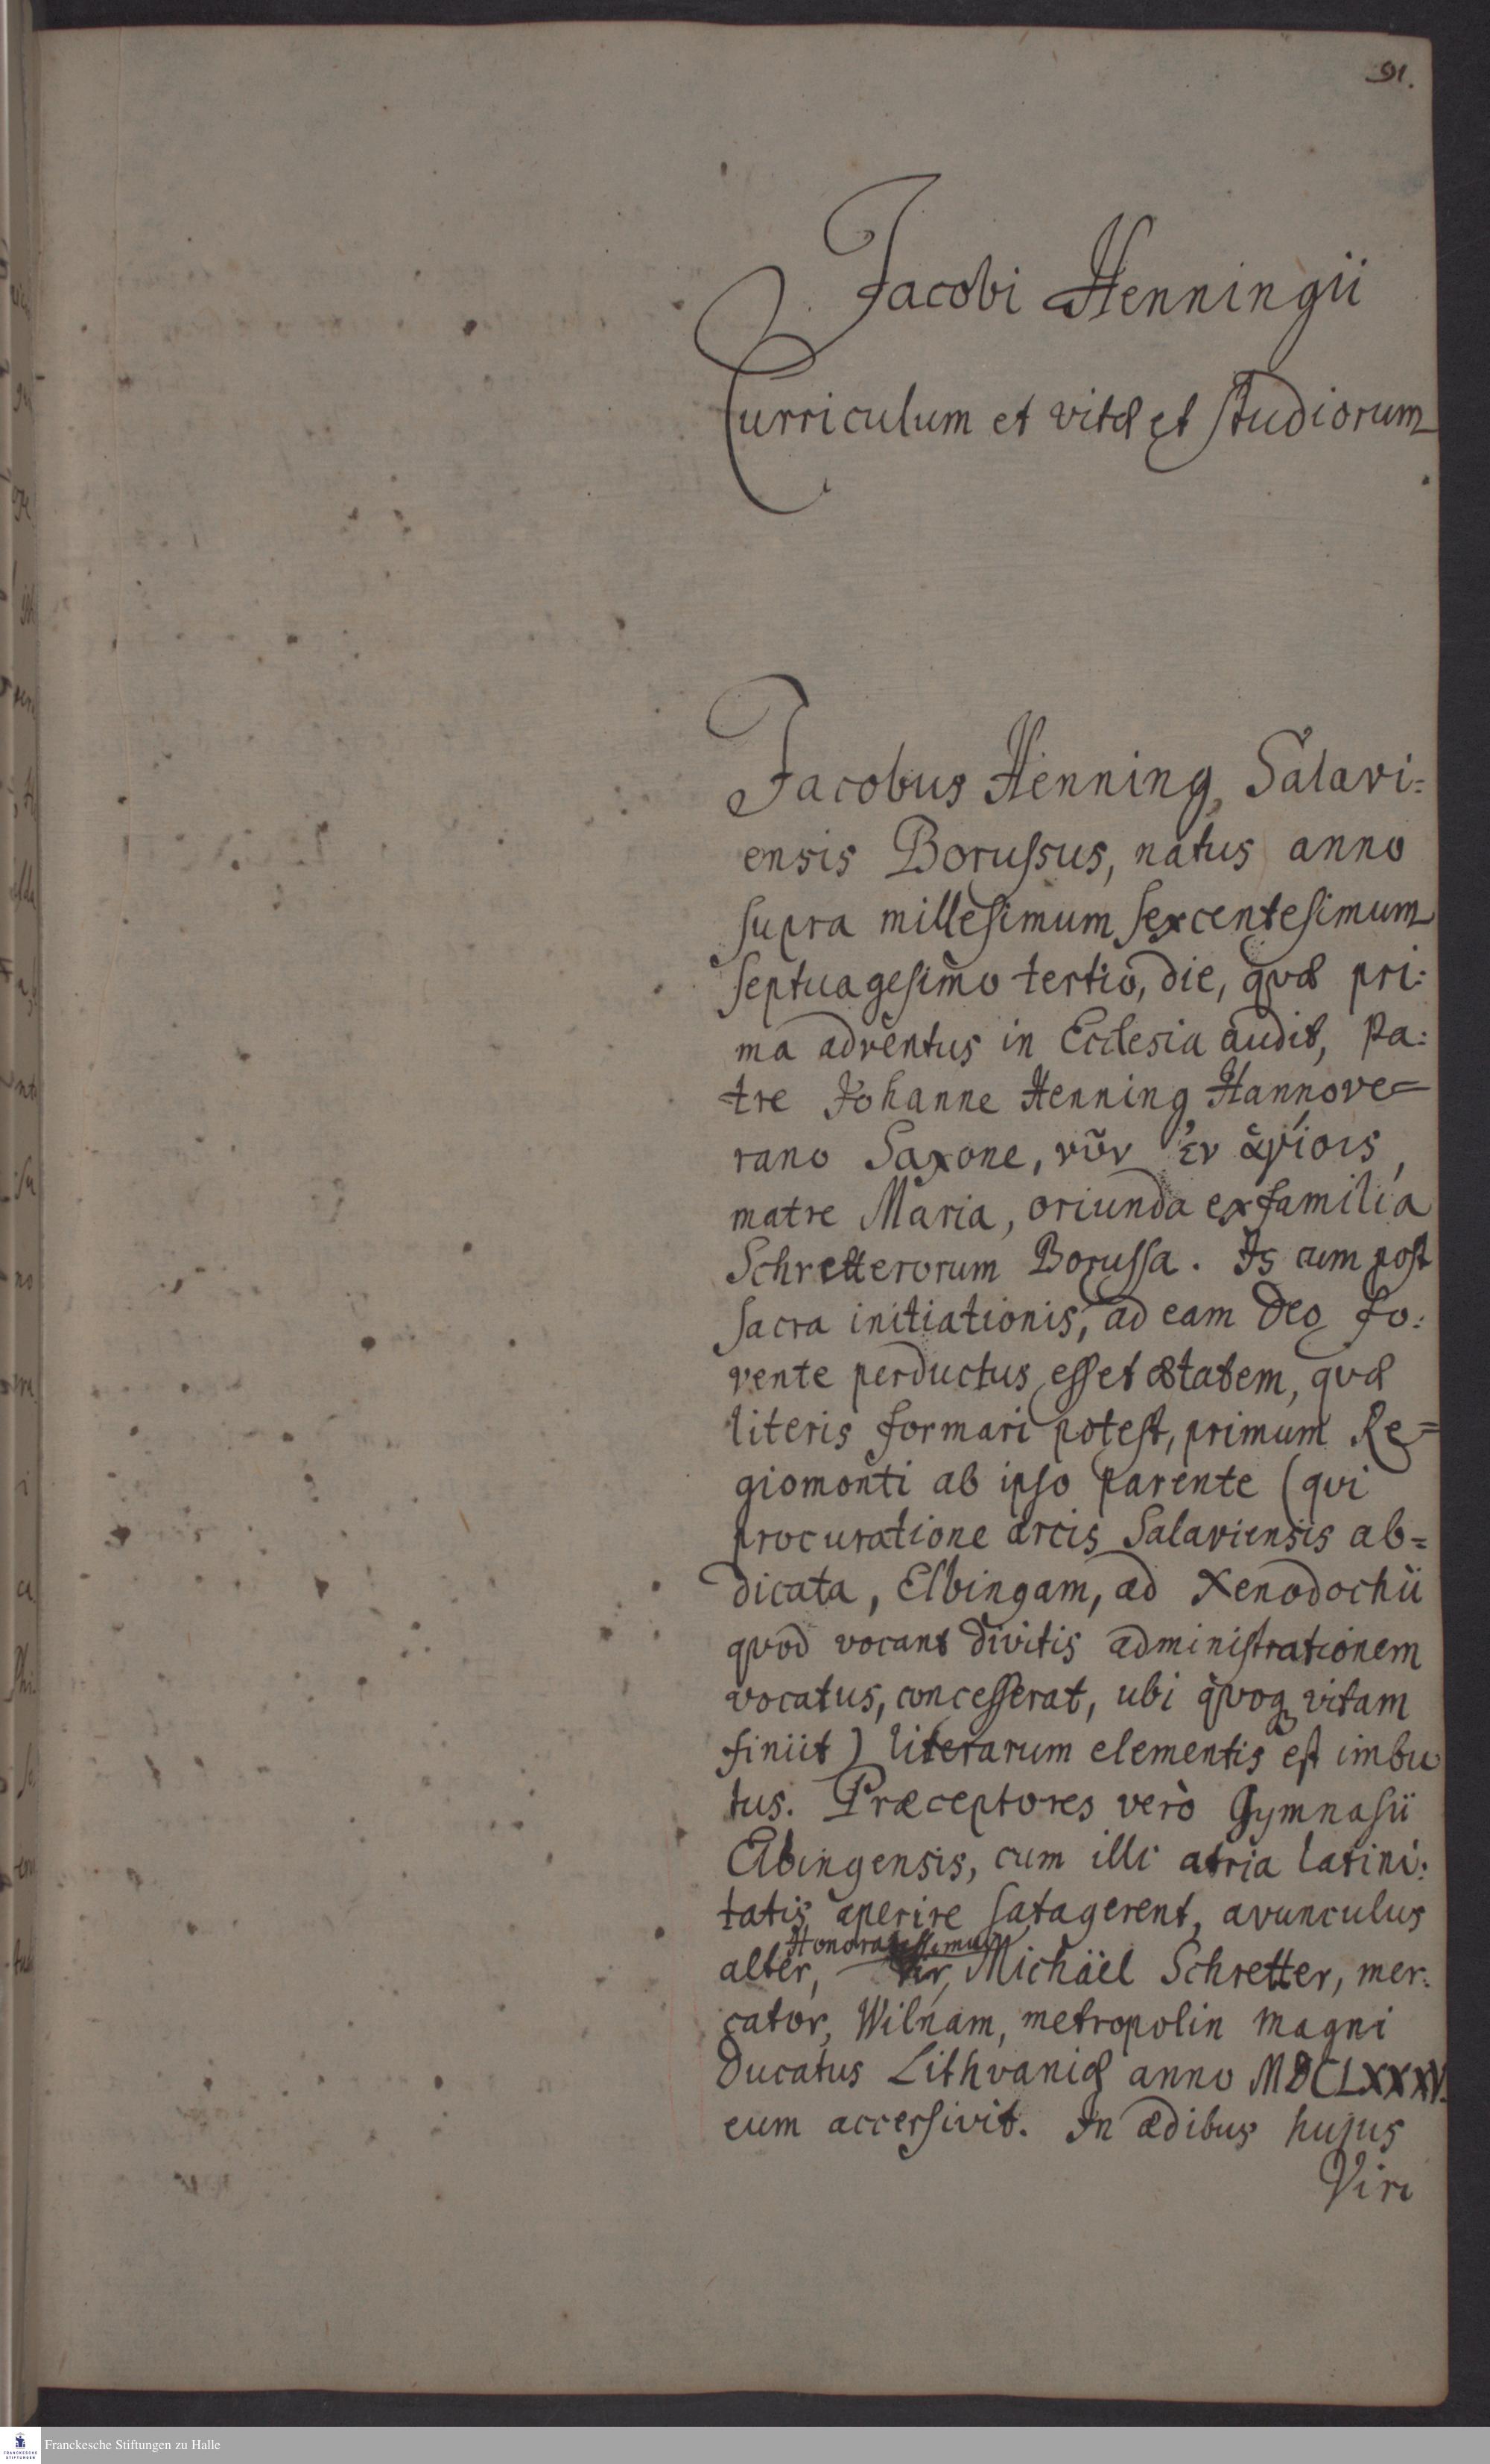 91.
Jacobi Henningii
Curriculum et vitæ et studiorum
Jacobus Henning, Salavi=
ensis Borussus, natus anno
supra millesimum sexcentesimum
septuagesimo tertio, die, qvæ pri=
ma adventus in Ecclesia audit, Pa=
tre Johanne Henning Hannove=
rano Saxone, νῦν ἐν ἁγίοις,
matre Maria, oriunda ex familia
Schretterorum Borussa. Is cum post
sacra initiationis, ad eam Deo fo=
vente perductus esset ætatem, qvæ
literis formari potest, primum Re=
giomonti ab ipso parente (qvi
procuratione arcis Salaviensis ab=
dicata, Elbingam, ad Xenodochii
qvod vocant divitis administrationem
vocatus, concesserat, ubi qvoq vitam
finiit) literarum elementis est imbu
tus. Præceptores verò Gymnasii
Elbingensis, cum illi atria latini=
tatis aperire satagerent, avunculus
Honoratissimus
alter, Vir, Michäel Schretter, mer=
cator, Wilnam, metropolin magni
Ducatus Lithvaniæ anno MDCLXXXV.
eum accersivit. In ædibus hujus
Viri
Franckesche Stiftungen zu Halle